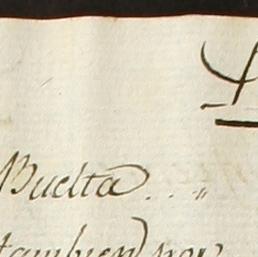 Buelta . . "
tambien por